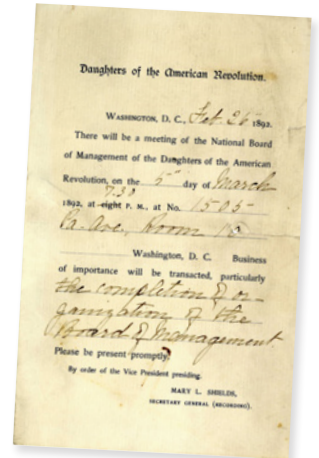 Daughters of the American Revolution.
WASHINGTON, D. C., Feb. 26 1892.
There will be a meeting of the National Board
of Management of the Daughters of the American
Revolution, on the 5th day of March
7.30
1892, at eight P. M., at No. 1505
Pa. Ave., Room 10
Washington, D. C. Business
of importance will be transacted, particularly
the completion of or-
ganization of the
Board of Management.
Please be present promptly.
By order of the Vice President presiding.
MARY L. SHIELDS,
SECRETARY GENERAL (RECORDING).